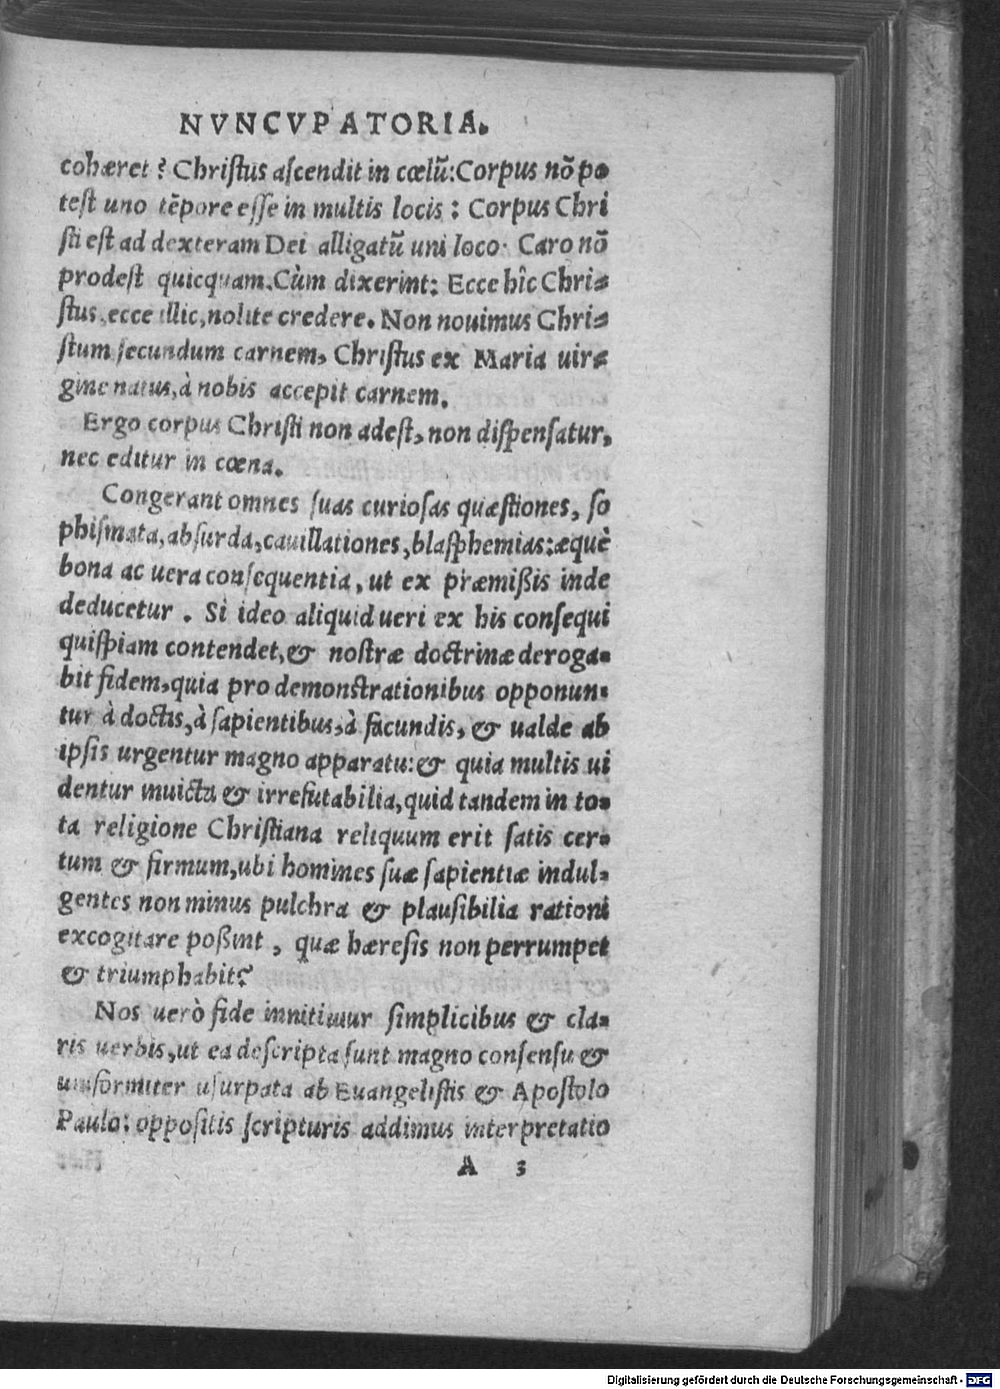 NVNCVPATORIA.
cohæret? Christus ascendit in cœlũ: Corpus nõ po-
test uno tẽpore esse in multis locis: Corpus Chri
sti est ad dexteram Dei alligatũ uni loco. Caro nõ
prodest quicquam. Cùm dixerint: Ecce hîc Chri-
stus, ecce illic, nolite credere. Non nouimus Chri-
stum secundum carnem, Christus ex Maria uir-
gine natus, à nobis accepit carnem.
Ergo corpus Christi non adest, non dispensatur,
nec editur in cœna.
Congerant omnes suas curiosas quæstiones, so
phismata, absurda, cauillationes, blasphemias: æquè
bona ac uera consequentia, ut ex præmißis inde
deducetur. Si ideo aliquid ueri ex his consequi
quispiam contendet, & nostræ doctrinæ deroga-
bit fidem, quia pro demonstrationibus opponun-
tur à doctis, à sapientibus, à facundis, & ualde ab
ipsis urgentur magno apparatu: & quia multis ui
dentur inuicta & irrefutabilia, quid tandem in to-
ta religione Christiana reliquum erit satis cer-
tum & firmum, ubi homines suæ sapientiæ indul-
gentes non minus pulchra & plausibilia rationi
excogitare poßint, quæ hæresis non perrumpet
& triumphabit?
Nos uerò fide innitimur simplicibus & cla-
ris uerbis, ut ea descripta sunt magno consensu &
uniformiter usurpata ab Euangelistis & Apostolo
Paulo: oppositis scripturis addimus interpretatio
A 3
Digitalisierung gefördert durch die Deutsche Forschungsgemeinschaft - DFG